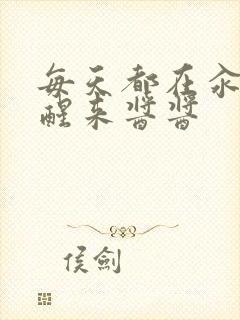 每天都在汆
醒来醬醬
侯劍